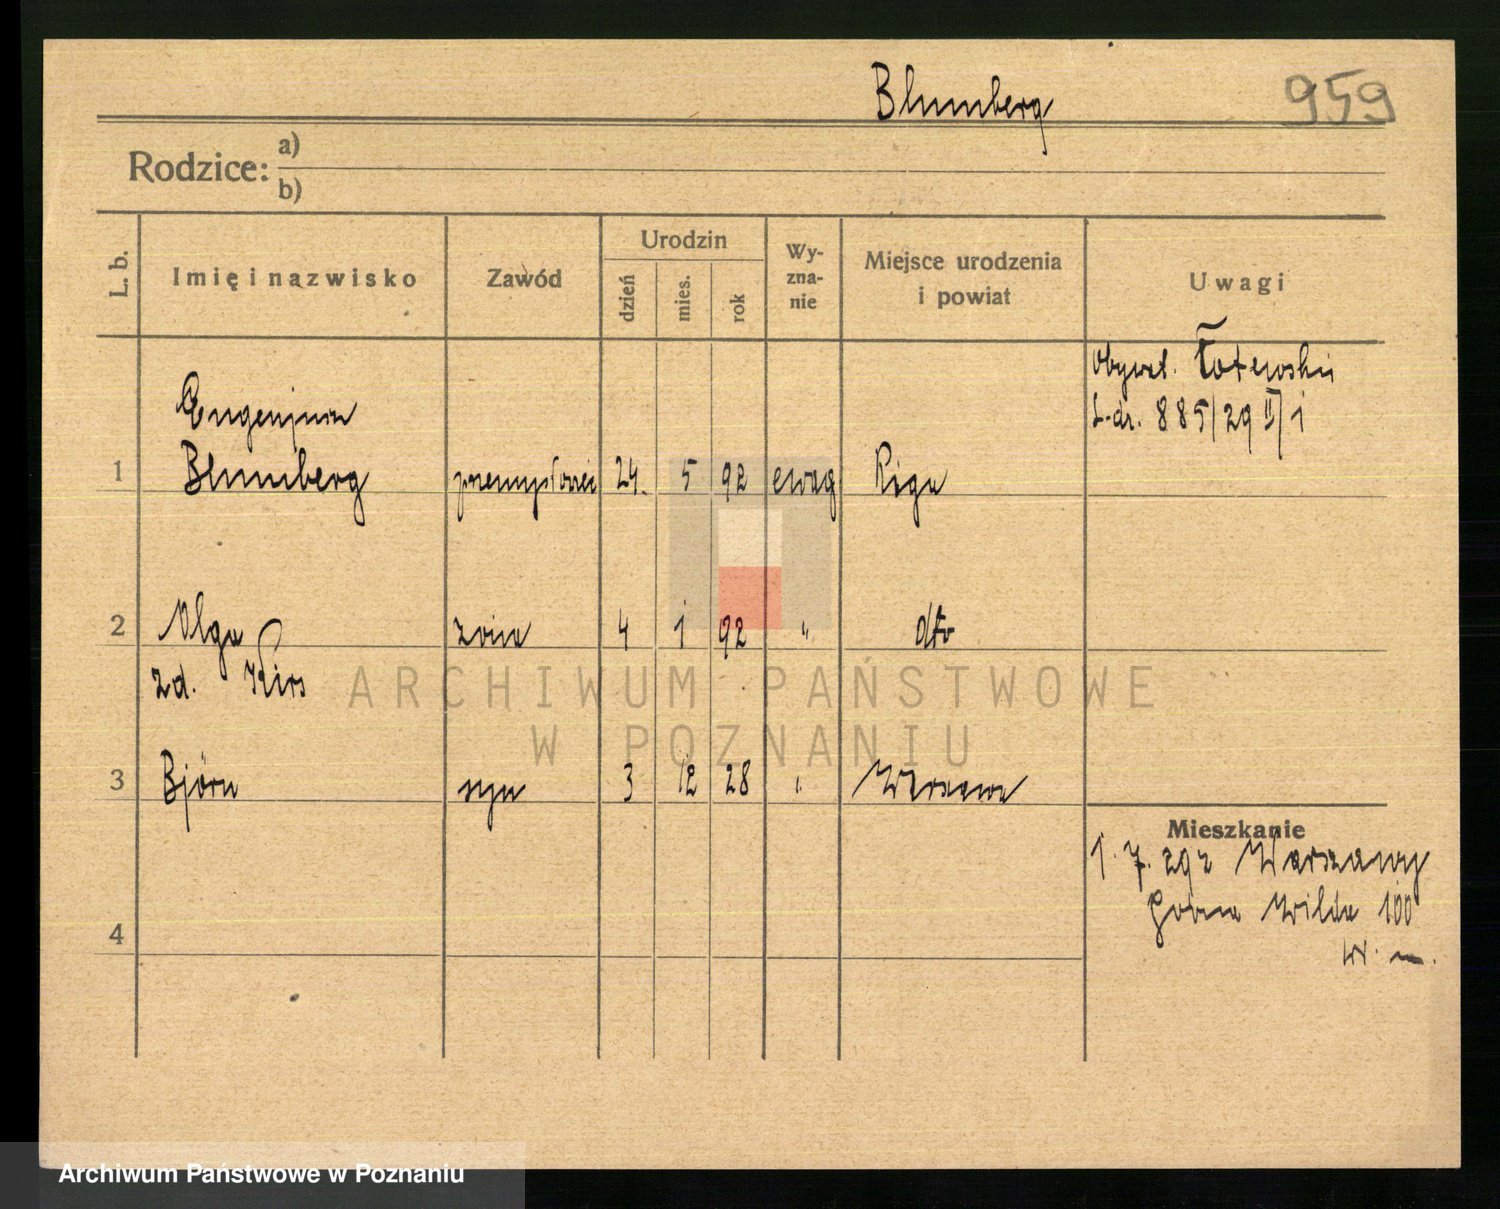 Blumberg
959
Rodzice: a)
b)
L. b.
Imię i nazwisko
Zawód
Urodzin
dzień
mies.
rok
Wy-
zna-
nie
Miejsce urodzenia
i powiat
Uwagi
Obywat. Łotewski
L.dr. 885/29 II/1
Eugenjusz
1 Blumberg przemysłowiec 24. 5 92 ewag Riga
2 Olga żona 4 1 92 " dto
zd. Kirs
3 Björn syn 3 12 28 " Warszawa
Mieszkanie
1. 7. 29 z Warszawy
Górna Wilda 100
4
ARCHIWUM PAŃSTWOWE
W POZNANIU
Archiwum Państwowe w Poznaniu